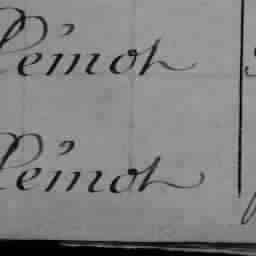 Lémot
Lémot